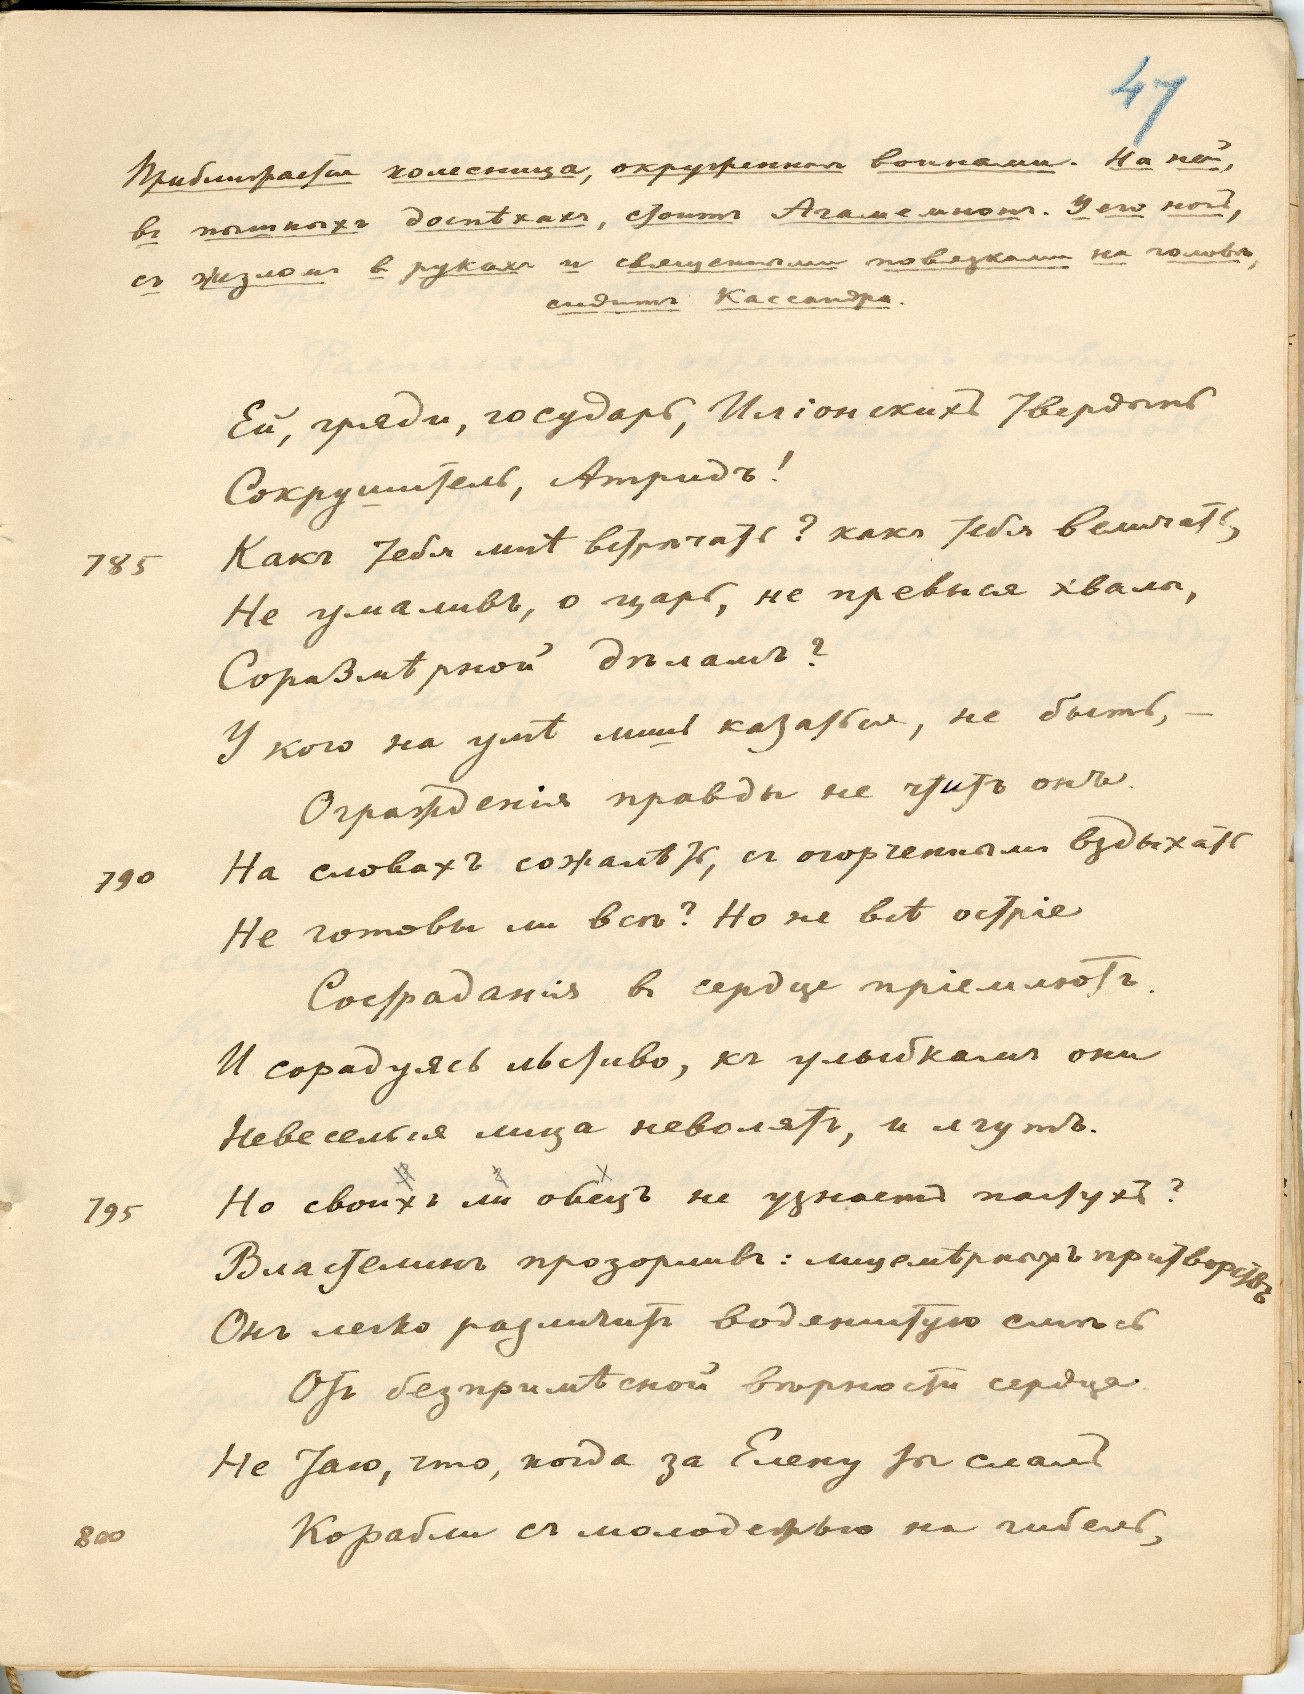 47
Приближается колесница, окруженная воинами. На ней,
въ пышныхъ доспѣхахъ, стоитъ Агамемнонъ. У его ногъ,
съ жезломъ въ рукахъ и священными повязками на головѣ,
сидитъ Кассандра.
Ей, гряди, государь, Иліонскихъ твердынь
Сокрушитель, Атридъ!
785 Какъ тебя мнѣ встрѣчать? какъ тебя величать,
Не умаливъ, о царь, не превыся хвалы,
Соразмѣрной дѣламъ?
У кого на умѣ лишь казаться, не быть, –
Огражденія правды не чтитъ онъ.
790 На словахъ сожалѣть, съ огорченнымъ вздыхать
Не готовы ли всѣ? Но не всѣ остріе
Состраданія въ сердце пріемлютъ.
И сорадуясь льстиво, къ улыбкамъ они
Невеселыя лица неволятъ, и лгутъ.
795 Но своихъ ли овецъ не узнаетъ пастухъ?
Властелинъ прозорливъ: лицемѣрныхъ притворствъ
Онъ легко различитъ водянистую смѣсь
Отъ безпримѣсной вѣрности сердца.
Не таю, что, когда за Елену ты слалъ
800 Корабли съ молодежью на гибель,